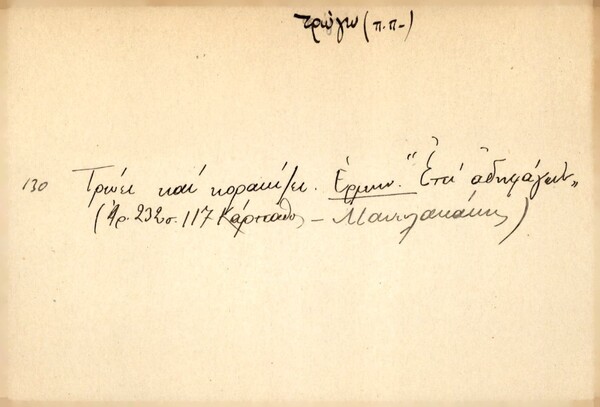 τρώγω (π.π-)
130 Τρώει καί κορακίζει. Ἑρμην. "Ἐπί ἀδηφάγων"
(Ἀρ. 232 σ. 117 Κάρπαθος - Μανωλακάκης)